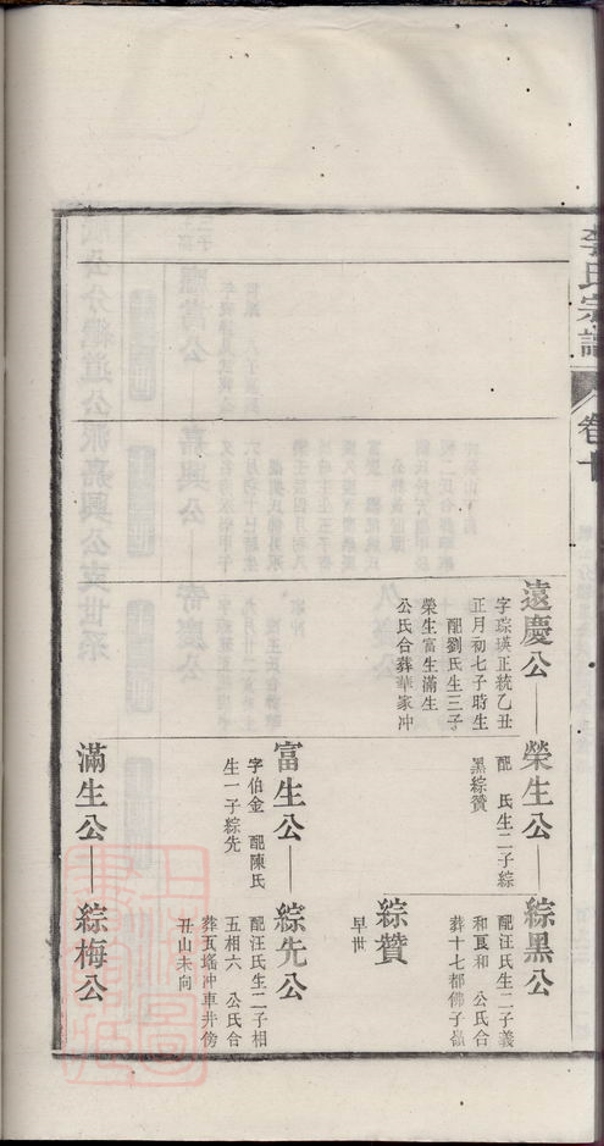 李氏宗譜
卷十
遠慶公
字琮瑛正統乙丑
正月初七子時生
配劉氏生三子
榮生富生滿生
公氏合葬華家冲
榮生公
配 氏生二子綜
黑綜贊
綜黑公
配汪氏生二子義
和 和 公氏合
葬十七都佛子嶺
綜贊
早世
富生公
字伯金 配陳氏
生一子綜先
綜先公
配汪氏生二子相
五相六 公氏合
葬瓦瑤冲車井傍
丑山未向
滿生公
綜梅公